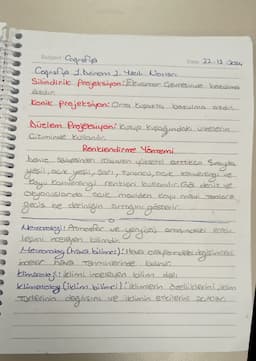 Subject Coğrafya Date 22.12.2024
Coğrafya 1. Dönem 2. Yazılı Notları
Silindirik Projeksiyon: Ekvator Çevresinde bozulma
azdır.
Konik Projeksiyon: Orta Kuşakta bozulma azdır.
Düzlem Projeksiyon: Kutup Kuşağındaki ülkelerin
Çiziminde kullanılır.
Renklendirme Yöntemi
Deniz seviyesinden itibaren yükselti arttıkça Sırasıyla
yeşil, açık yeşil, sarı, turuncu, açık kahverengi ve
Koyu Kahverengi renkleri kullanılır. Göl deniz ve
Okyanuslarda açık maviden koyu mavi tonlara
geçiş ise derinliğin arttığını gösterir.
Meteoroloji: Atmosfer ve yeryüzü arasındaki
inceleyen bilimdir.
(hava bilimci): Hava olaylarındaki değişimleri
inceler hava tahminlerinde bulunur.
Klimatoloji: İklimi inceleyen bilim dalı
Klimatolog (iklim bilimci): iklimlerin özelliklerini, iklim
Tiplerinin dağılışını ve iklimin etkilerini